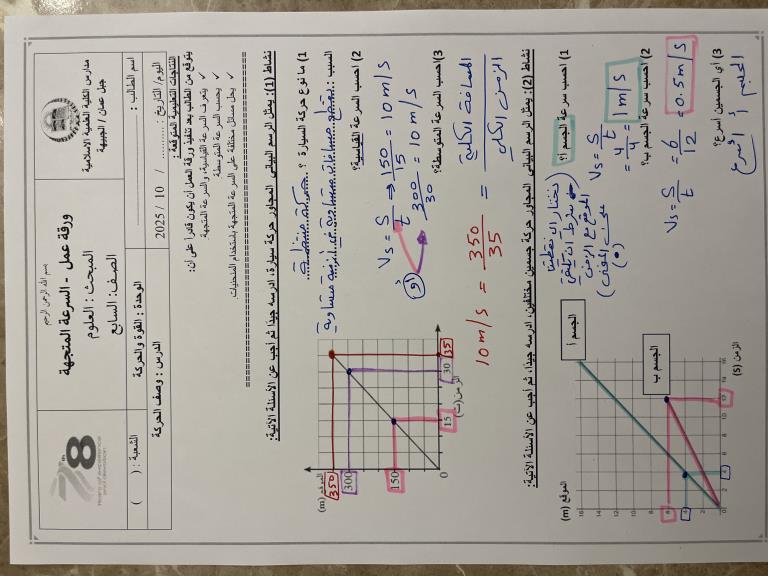 بسم الله الرحمن الرحيم
مدارس الكلية العلمية الاسلامية
جبل عمان / الجبيهة
ورقة عمل - السرعة المتجهة
المبحث : العلوم
الصف: السابع
اسم الطالب :
الوحدة : القوة والحركة
الشعبة : ( )
اليوم/ التاريخ : / 10 / 2025
الدرس : وصف الحركة
النتاجات التعليمية المتوقعة :
يتوقع من الطالب بعد تنفيذ ورقة العمل أن يكون قادرا على أن:
✓ يتعرف السرعة القياسية، والسرعة المتجهة
✓ يحسب السرعة المتوسطة
✓ يحل مسائل مختلفة على السرعة المتجهة باستخدام المنحنيات
نشاط (1): يمثل الرسم البياني المجاور حركة سيارة، ادرسه جيدا ثم أجب عن الأسئلة الآتية:
1) ما نوع حركة السيارة ؟ حركة منتظمة
السبب : تقطع مسافات متساوية في أزمنة متساوية
2) احسب السرعة القياسية؟
Vs = S/t → 150/15 = 10 m/s
أو 300/30 = 10 m/s
3) احسب السرعة المتوسطة؟
المسافة الكلية / الزمن الكلي = 350/35 = 10 m/s
الموقع (m)
350
300
150
0
15
30
35
الزمن (ث)
نشاط (2): يمثل الرسم البياني المجاور حركة جسمين مختلفتين، ادرسه جيدا، ثم أجب عن الأسئلة الآتية:
1) احسب سرعة الجسم أ؟
Vs = S/t
= 4/4 = 1 m/s
2) احسب سرعة الجسم ب؟
Vs = S/t = 6/12 = 0.5 m/s
3) أي الجسمين أسرع؟
الجسم أ أسرع
الموقع (m)
الجسم أ
الجسم ب
الزمن (s)